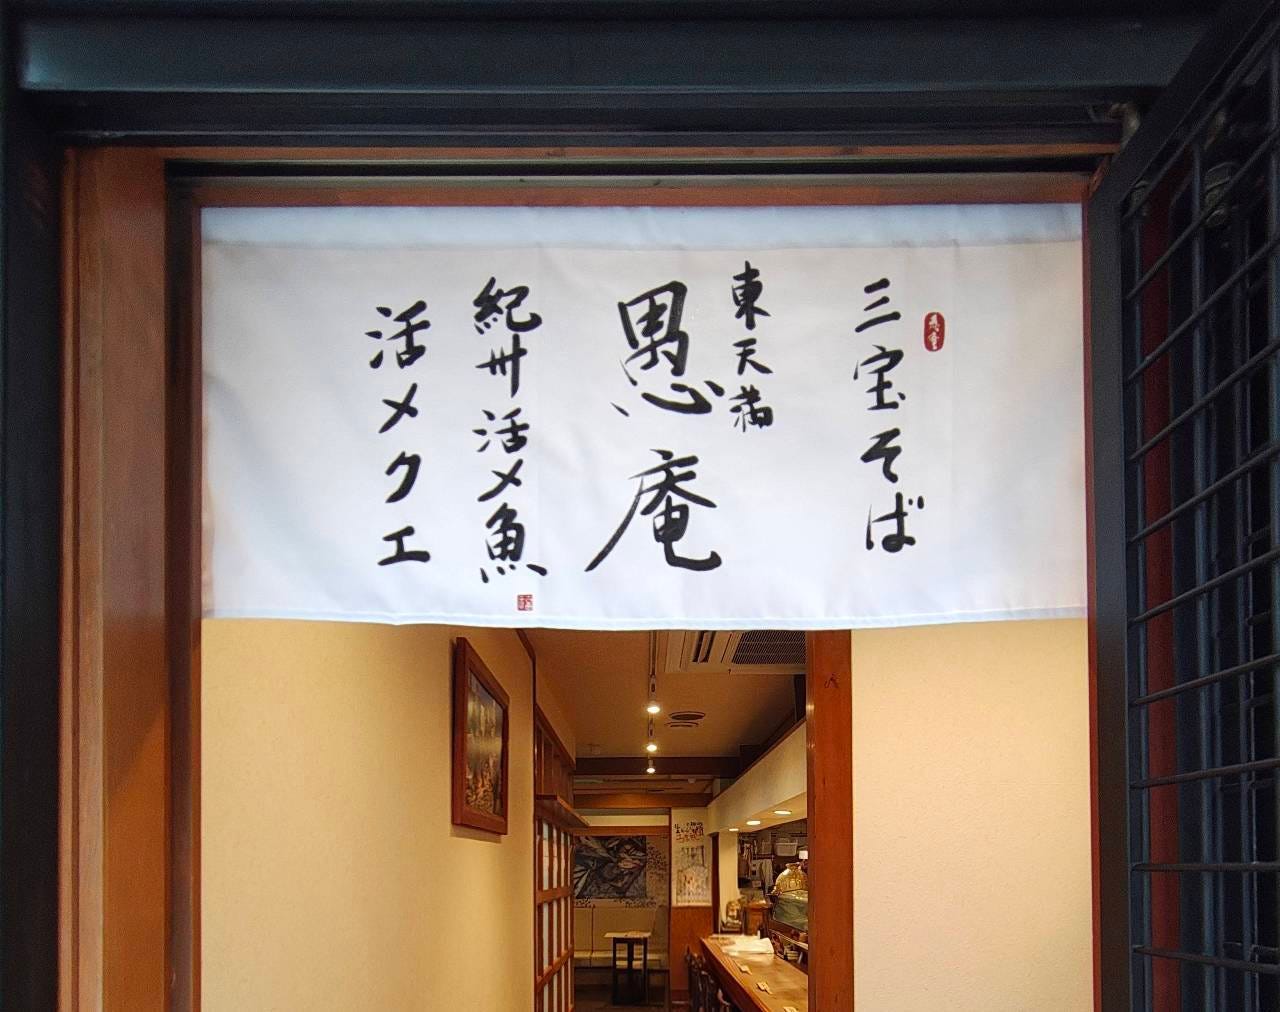 三宝そば
東天満
愚庵
紀州活〆魚
活〆クエ